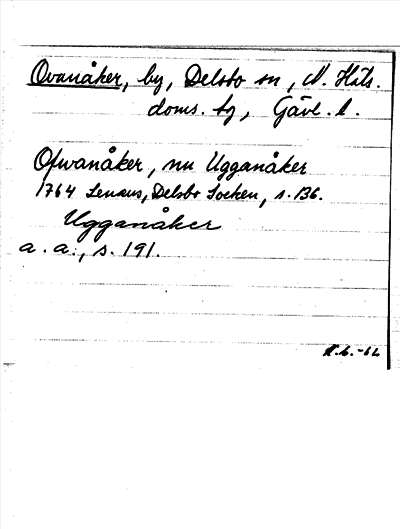 Ovanåker, by, Delsbo sn, N. Häls.
doms. bg, Gävl. l.
Ofwanåker, nu Ugganåker
1764 Lenæus, Delsbo Socken, s. 136.
Ugganåker
a. a., s. 191.